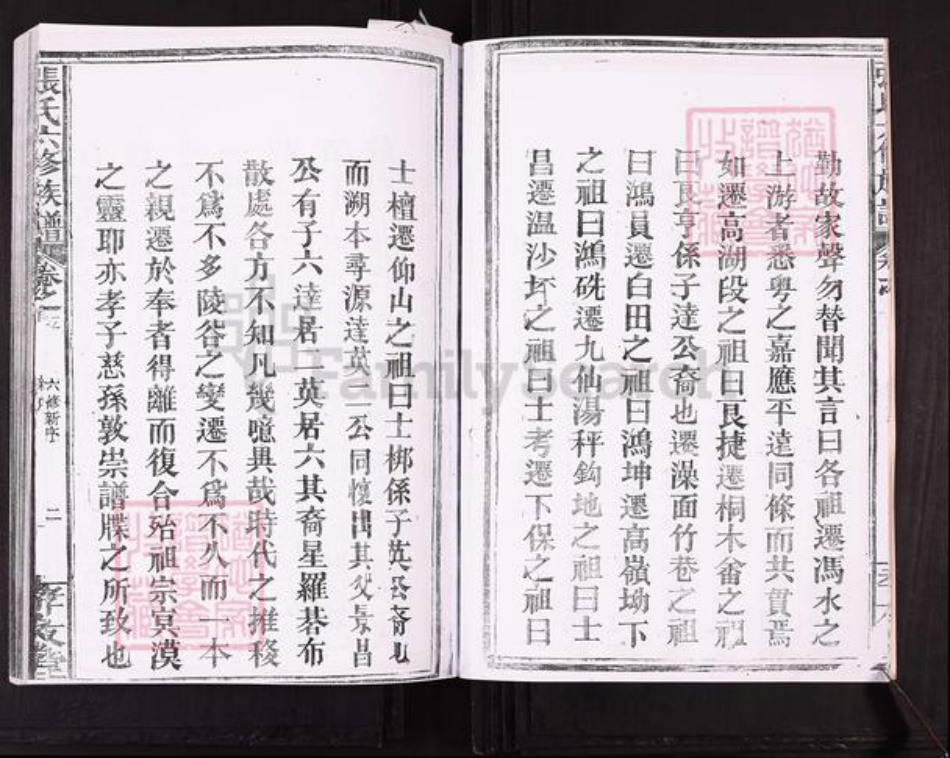 勤故家聲勿替聞其言曰各祖遷馮水之
上游者悉粵之嘉應平遠同條而共貫焉
如遷高湖段之祖曰艮捷遷桐木畬之祖
曰艮亨係子達公裔也遷澡面竹巷之祖
曰鴻員遷白田之祖曰鴻坤遷高嶺坳下
之祖曰鴻硄遷九仙湯秤鈎地之祖曰士
昌遷溫沙坏之祖曰士考遷下保之祖曰
士檀遷仰山之祖曰士梆係子英公裔也
而溯本尋源達英二公同懷出其父景昌
公有子六達居一英居六其裔星羅碁布
散處各方不知凡幾噫異哉時代之推移
不爲不多陵谷之變遷不爲不久而一本
之親遷於奉者得離而復合殆祖宗冥漠
之靈耶亦孝子慈孫敦崇譜牒之所致也
張氏六修族譜
卷之
六修新序
二
孝友堂
FamilySearch